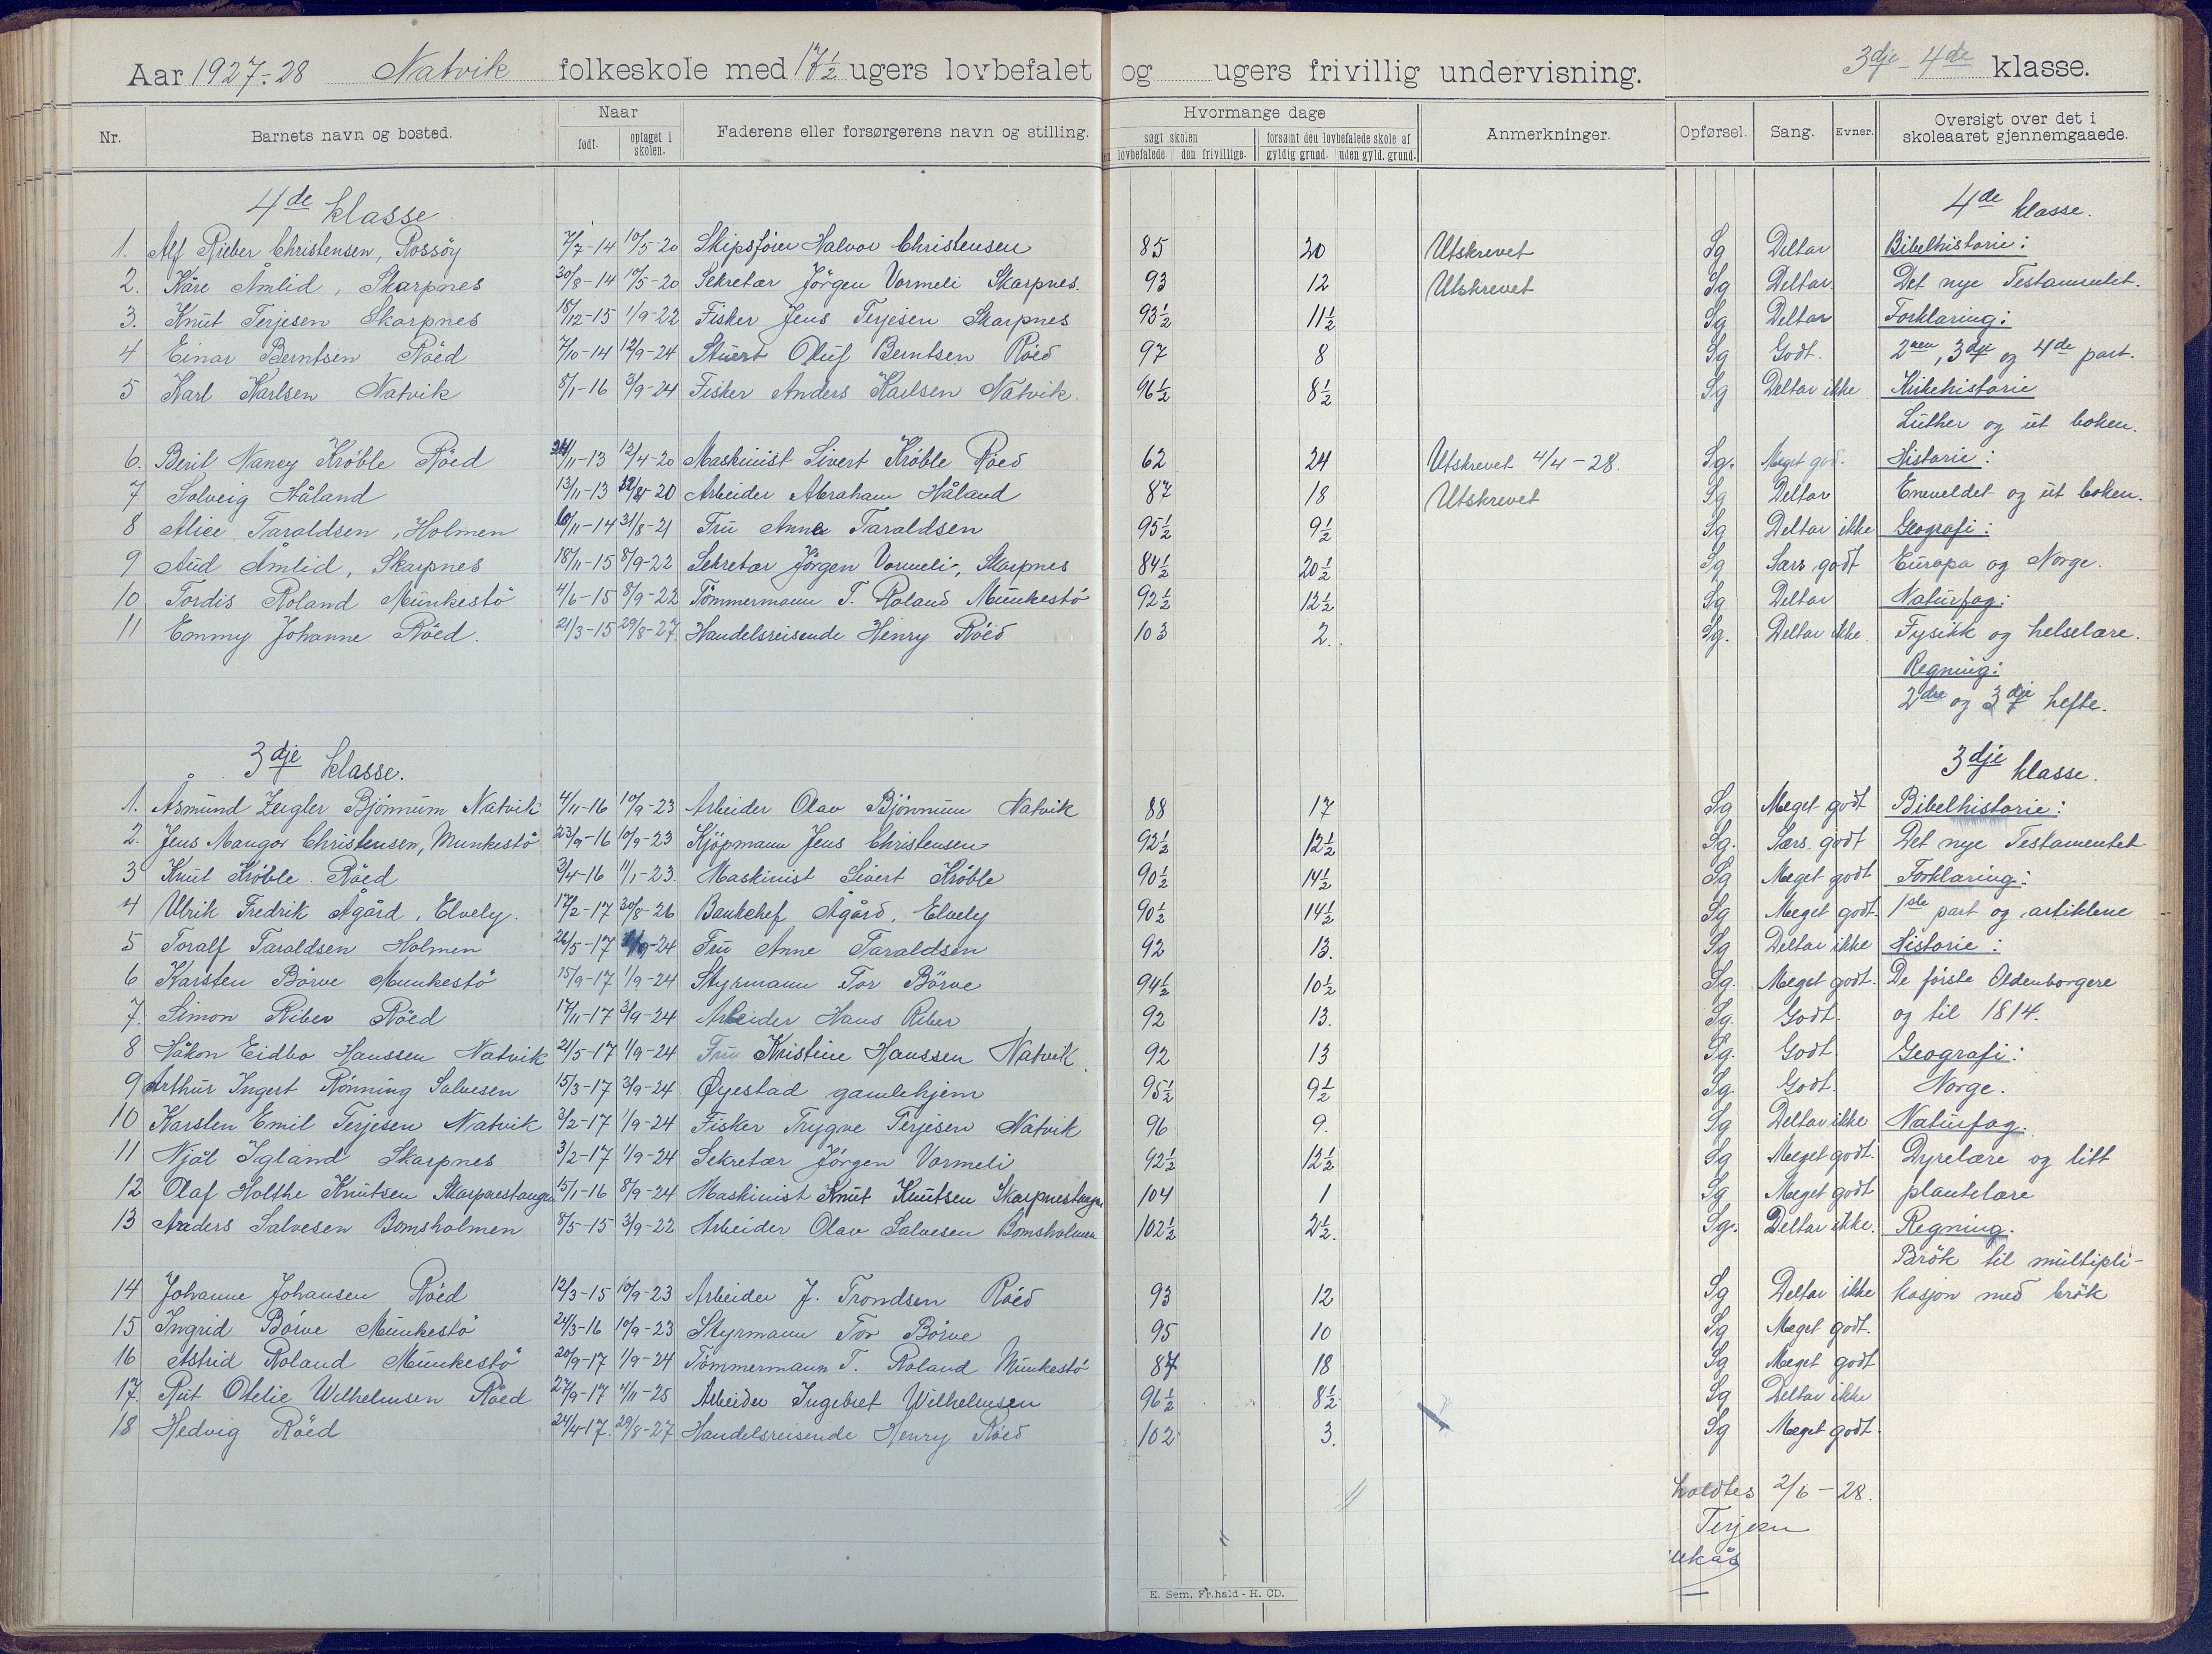 Aar 1927-28 Natvik folkeskole med 17½ ugers lovbefalet og ugers frivillig undervisning. 3dje - 4de klasse.
Nr. Barnets navn og bosted. Naar født. optaget i skolen. Faderens eller forsørgerens navn og stilling. Hvormange dage søgt skolen lovbefalede den frivillige. forsømt den lovbefalede skole af gyldig grund. uden gyld. grund. Anmerkninger. Opførsel. Sang. Evner. Oversigt over det i skoleaaret gjennemgaaede.
4de klasse. 4de klasse.
1. Alf Rieber Christensen, Rossöy 7/7-14 10/5-20 Skipsfører Halvor Christensen 85 20 Utskrevet Sg Deltar Bibelhistorie:
2. Kåre Åmlid, Skarpnes 30/8-14 10/5-20 Sekretær Jörgen Vormeli Skarpnes. 93 12 Utskrevet Sg Deltar Det nye Testamentet.
3. Knut Terjesen Skarpnes 18/12-15 1/9-22 Fisker Jens Terjesen Skarpnes 93½ 11½ Sg Deltar Forklaring:
4 Einar Berntsen Röed 7/10-14 12/9-24 Stuert Oluf Berntsen Röed 97 8 Sg Godt. 2nen, 3dje og 4de part.
5 Karl Karlsen Natvik 8/1-16 3/9-24 Fisker Anders Karlsen Natvik. 96½ 8½ Sg Deltar ikke Kirkehistorie
Luther og ut boken.
6. Berit Nancy Kröble Röed 24/11-13 12/4-20 Maskinist Sivert Kröble Röed 62 24 Utskrevet 4/4-28. Sg. Meget god. Historie:
7 Solveig Håland 13/11-13 20 Arbeider Abraham Håland 87 18 Utskrevet Sg Deltar Eneveldet og ut boken.
8 Alice Taraldsen, Holmen 10/11-14 31/8-21 Fru Anna Taraldsen 95½ 9½ Sg Deltar ikke Geografi:
9 Aud Åmlid, Skarpnes 18/11-15 8/9-22 Sekretær Jörgen Vormeli, Skarpnes 84½ 20½ Sg Særs godt Europa og Norge.
10 Tordis Roland Munkestö 4/6-15 8/9-22 Tömmermann T. Roland Munkestö 92½ 12½ Sg Deltar Naturfag:
11 Emmy Johanne Röed. 21/3-15 29/8-27 Handelsreisende Henry Röed 103 2. Sg. Deltar ikke Fysikk og helselære.
Regning:
2dre og 3dje hefte.
3dje klasse. 3dje klasse.
1. Åsmund Zeigler Bjönnum Natvik 4/11-16 10/9-23 Arbeider Olav Bjönnum Natvik 88 17 Sg Meget godt Bibelhistorie:
2. Jens Mangor Christensen, Munkestö 23/9-16 10/9-23 Kjöpmann Jens Christensen 92½ 12½ Sg. Særs godt Det nye Testamentet
3 Knut Kröble Röed 3/4-16 11/1-23. Maskinist Sivert Kröble 90½ 14½ Sg Meget godt Forklaring:
4 Ulrik Fredrik Ågård, Elvely. 17/2-17 30/8-26 Bankchef Ågård, Elvely 90½ 14½ Sg Meget godt. 1ste part og artiklene
5 Toralf Taraldsen Holmen 26/5-17 /9-24 Fru Anne Taraldsen 92 13. Sg Deltar ikke Historie:
6 Karsten Börve Munkestö 15/9-17 1/9-24 Styrmann Tor Börve 94½ 10½ Sg. Meget godt. De første Oldenborgere
7. Simon Riber Röed 17/11-17 3/9-24 Arbeider Hans Riber 92 13. Sg. Godt. og til 1814.
8 Håkon Eidbo Hanssen Natvik 21/5-17 1/9-24 Fru Kristine Hanssen Natvik. 92 13 Sg. Godt Geografi:
9 Arthur Ingert Rönning Salvesen 15/3-17 3/9-24 Øyestad gamlehjem 95½ 9½ Sg. Godt. Norge.
10 Karsten Emil Terjesen Natvik 3/2-17 1/9-24 Fisker Trygve Terjesen Natvik 96 9. Sg Deltar ikke Naturfag.
11 Njål Igland Skarpnes 3/2-17 1/9-24 Sekretær Jörgen Vormeli 92½ 12½ Sg Meget godt. Dyrelære og litt
12 Olaf Holthe Knutsen Skarpnestangen 15/1-16 8/9-24 Maskinist Knut Knutsen Skarpnestangen 104 1 Sg Meget godt plantelære
13 Anders Salvesen Bomsholmen 8/5-15 3/9-22 Arbeider Olav Salvesen Bomsholmen 102½ 2½. Sg. Deltar ikke. Regning.
Brök til multipli-
14 Johanne Johansen Röed 12/3-15 10/9-23 Arbeider J. Trondsen Röed 93 12 Sg Deltar ikke kasjon med brök
15 Ingrid Börve Munkestö 24/3-16 10/9-23 Styrmann Tor Börve 95 10 Sg Meget godt.
16 Astrid Roland Munkestö 20/9-17 1/9-24 Tömmermann T. Roland Munkestö 87 18 Sg Meget godt
17. Rut Otelie Wilhelmsen Röed 27/9-17 4/11-25 Arbeider Ingebret Wilhelmsen 96½ 8½ Sg Deltar ikke
18 Hedvig Röed 24/4-17. 29/8-27 Handelsreisende Henry Röed 102 3. Sg Meget godt.
holdtes 2/6-28.
Terjesen
E. Sem. Fr.hald - H. CD.